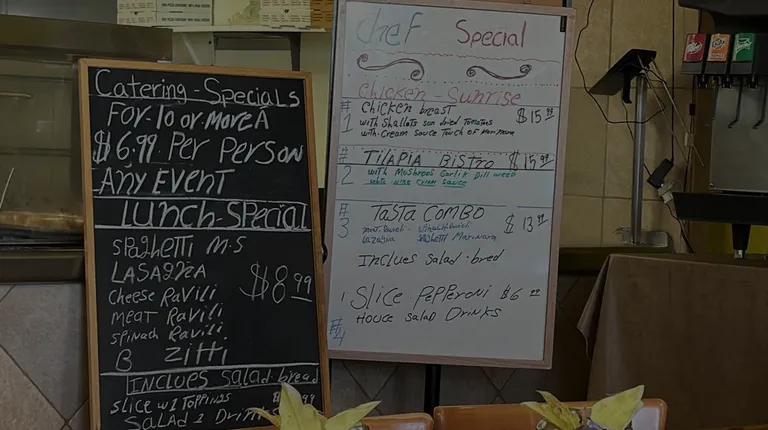 Catering-Specials
For 10 or more A
$6.99 Per Person
Any Event
Lunch-Special
Spaghetti M-S
LASAGNA
$8.99
Cheese Ravili
meat Ravili
spinach Ravili
B Zitti
Inclues Salad-bread
slice w1 Toppings
Salad 1 Drink
Chef Special
Chicken-Sunrise
#1 Chicken breast $15.99
with Shallots sun dried Tomatoes
with-Cream sauce Touch of Marinara
#2 TilApiA Bistro $15.99
with Mushroos Garlik Dill weed
white wine cream sauce
#3 TasTa Combo $13.99
Lazagna Spaghetti Marinara
Inclues Salad-bred
#4 1 Slice Pepperoni $6
House salad Drinks